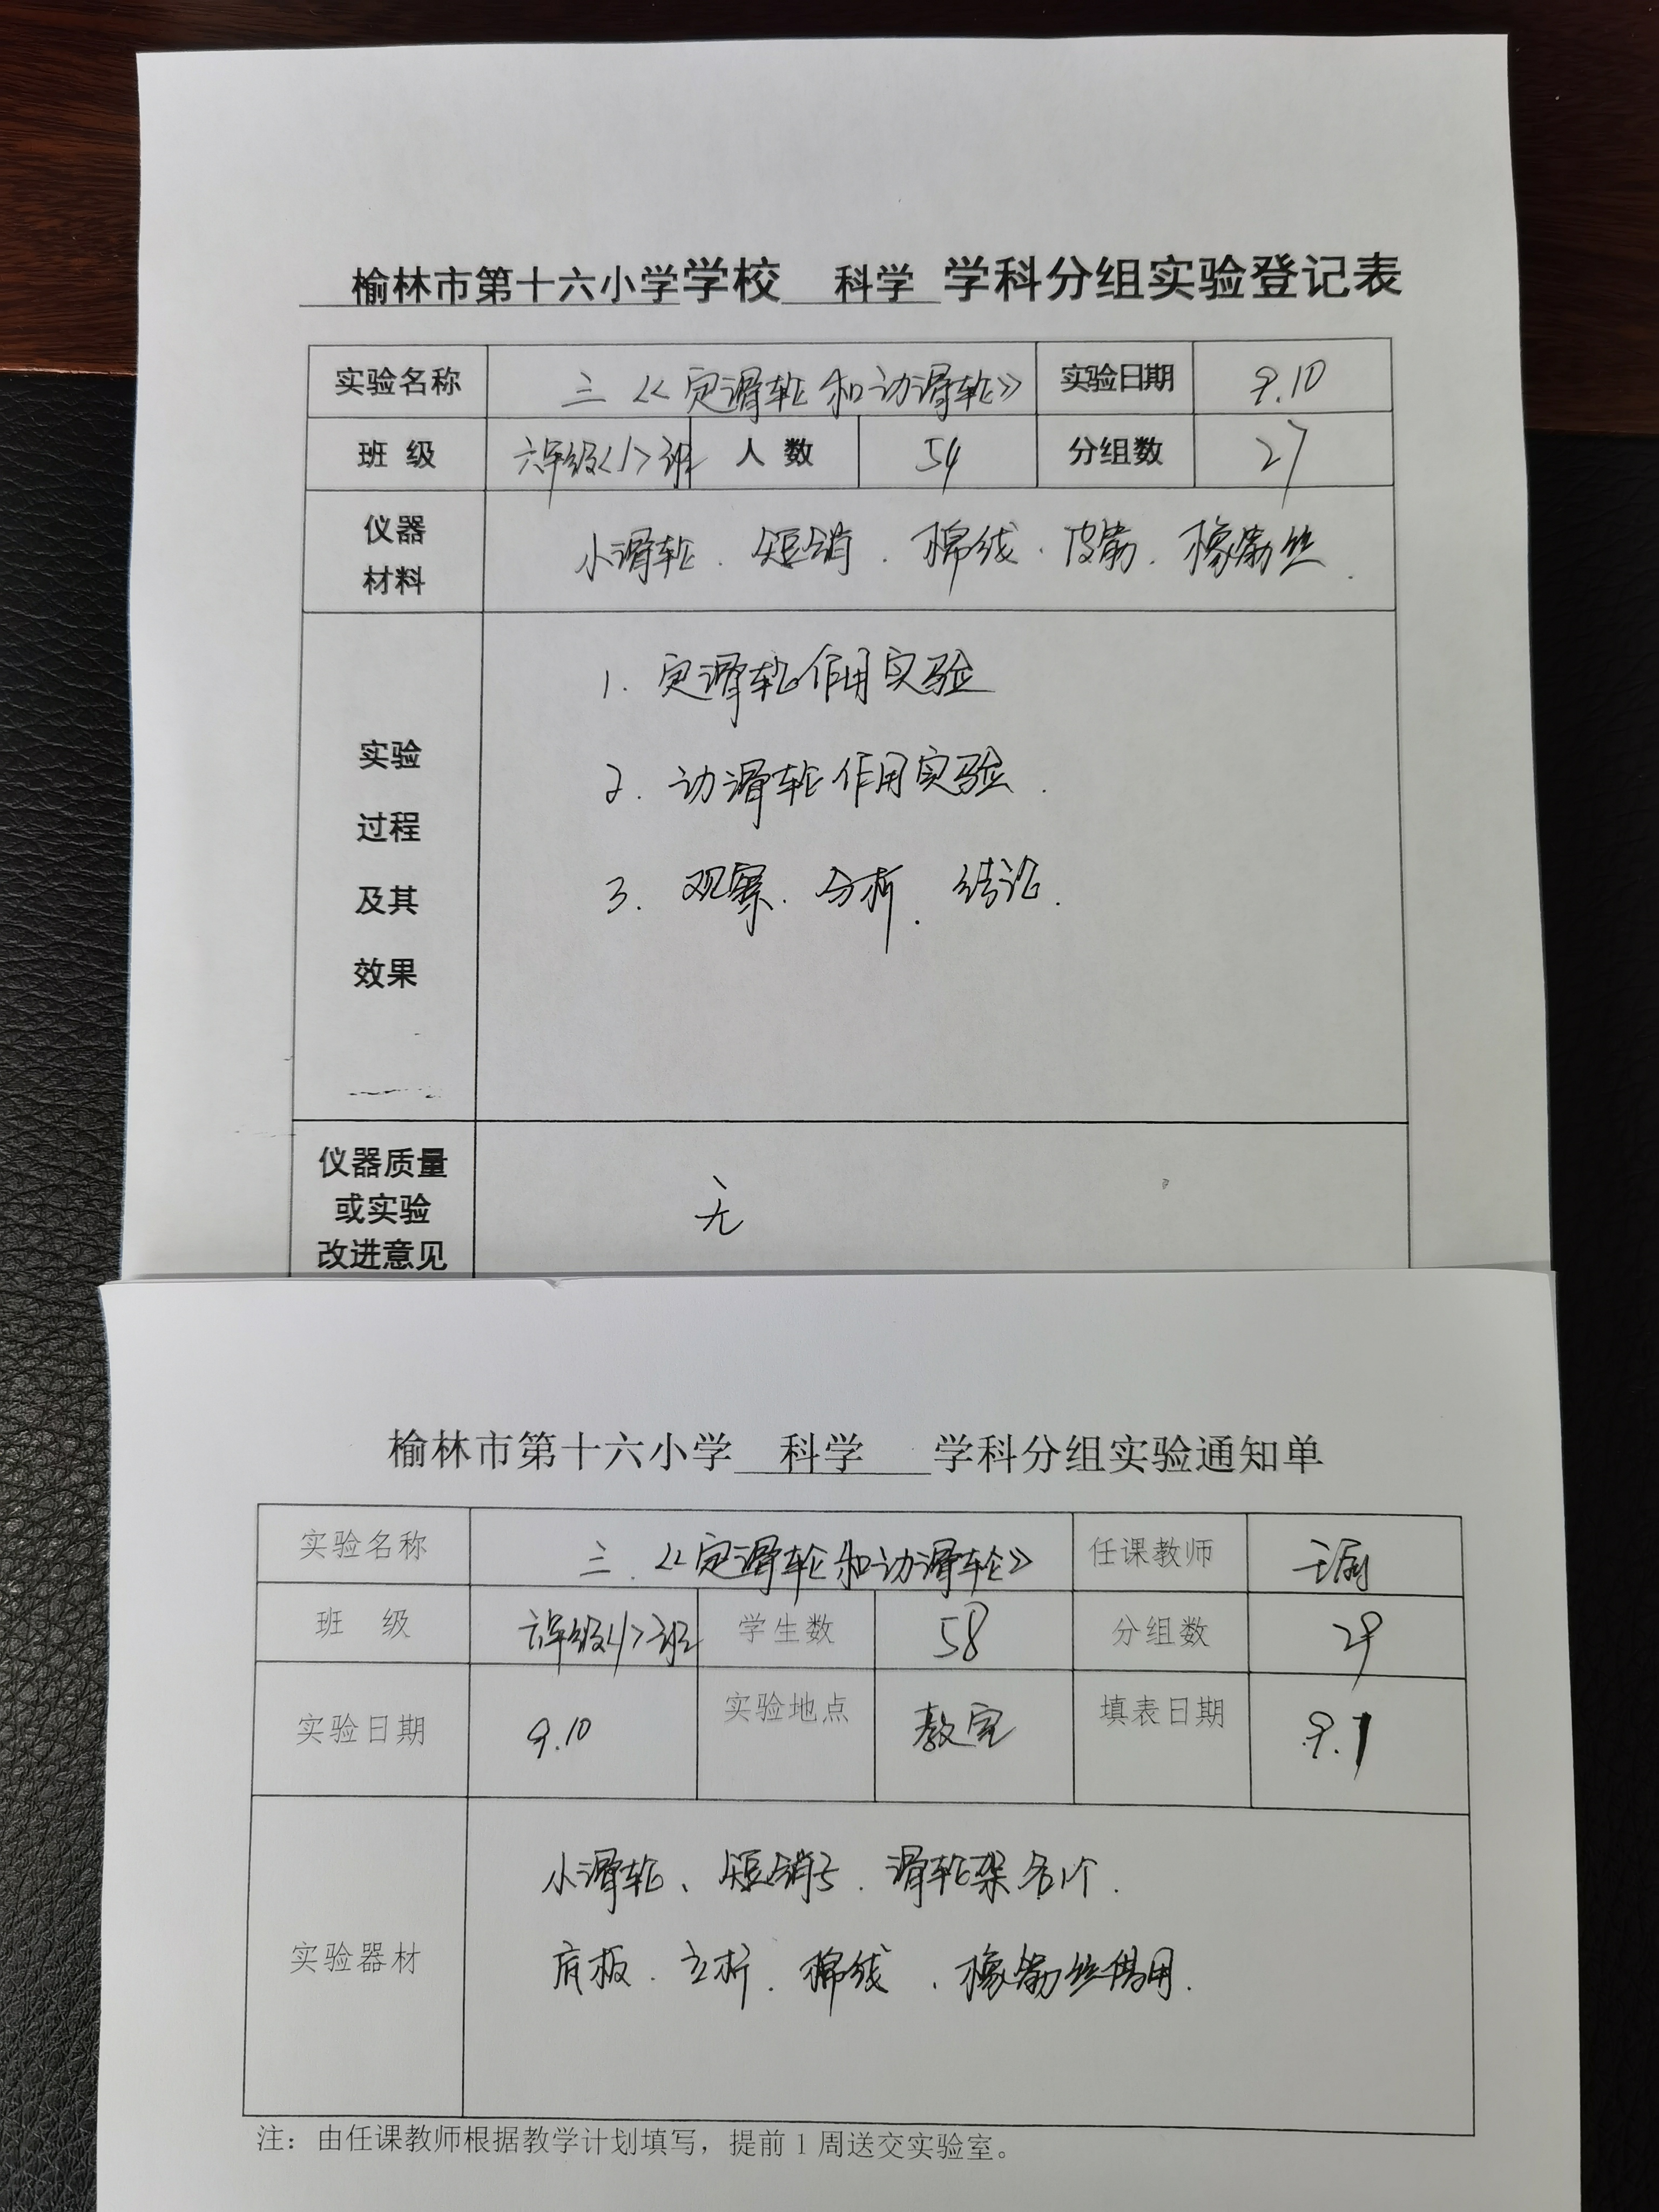 榆林市第十六小学学校 科学 学科分组实验登记表
实验名称 三《定滑轮和动滑轮》 实验日期 9.10
班 级 六年级<1>班 人 数 54 分组数 27
仪器
材料
小滑轮.短销.棉线.皮筋.橡筋丝.
实验
过程
及其
效果
1. 定滑轮作用实验
2. 动滑轮作用实验.
3. 观察.分析.结论.
仪器质量
或实验
改进意见
无
榆林市第十六小学 科学 学科分组实验通知单
实验名称 三.《定滑轮和动滑轮》 任课教师
班 级 六年级<1>班 学生数 58 分组数 29
实验日期 9.10 实验地点 教室 填表日期 9.1
实验器材
小滑轮、短销子.滑轮架各1个.
底板.立柱.棉线.橡筋丝备用.
注：由任课教师根据教学计划填写，提前1周送交实验室。